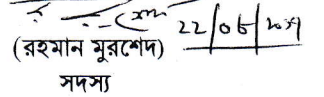 22/06/2021
(রহমান মুরশেদ)
সদস্য